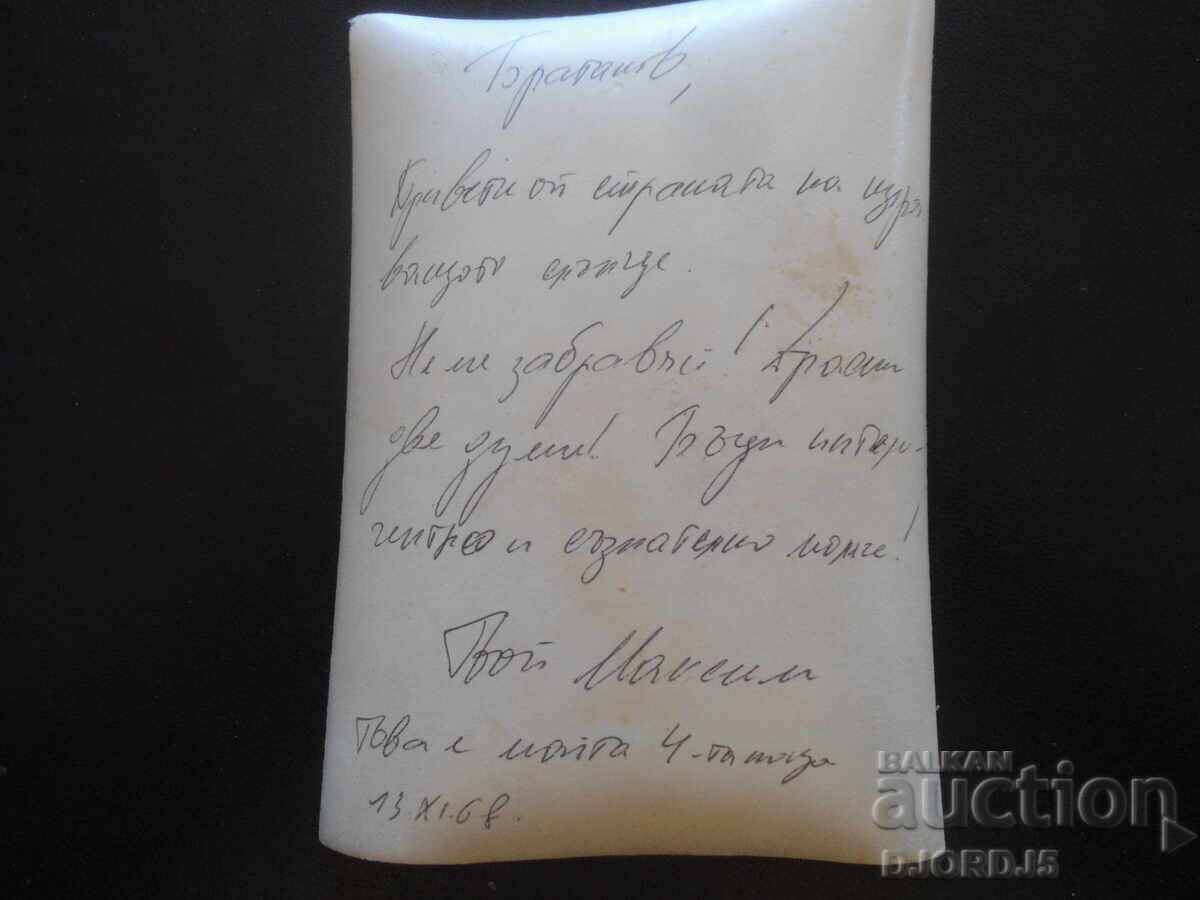 Братанов,
Привети от страната на изгря
ващото слънце.
Не ме забравяй! Драсни
две думи! Бъди интели-
гентно и съзнателно момче!
Твой Максим
Това е моята 4-та поща
13.XI.68.
BALKAN
auction
DJORDJ5